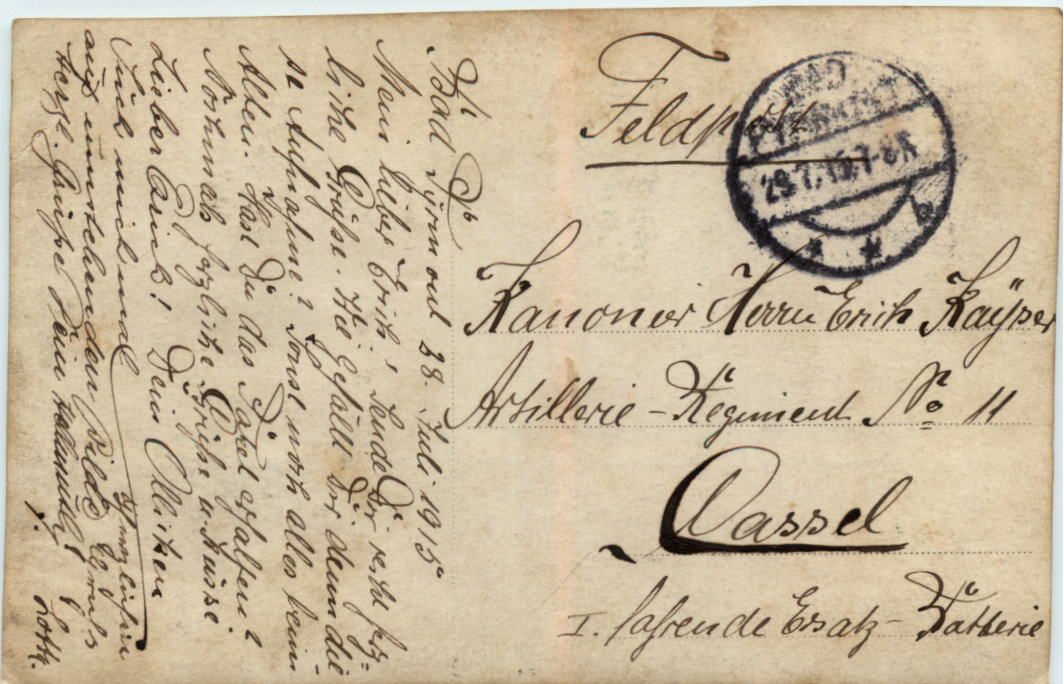 Feldpost
BAD PYRMONT
29.7.15.7-8N
b
Kanonier Herrn Erich Kayser
Artillerie-Regiment No 11
Cassel
I. fahrende Ersatz-Batterie
Bad Pyrmont 28. Juli 1915
Mein lieber Erich! Sende Dir recht herz-
liche Grüße. Wie gefällt Dir denn die-
se Aufnahme? Sonst noch alles beim
Alten. Hast Du das Paket erhalten?
Nochmals herzliche Grüße u. Küsse
Lieber Erich! Dein
Such mich mal
auf umstehenden Bilde
Herzl. Grüße Dein